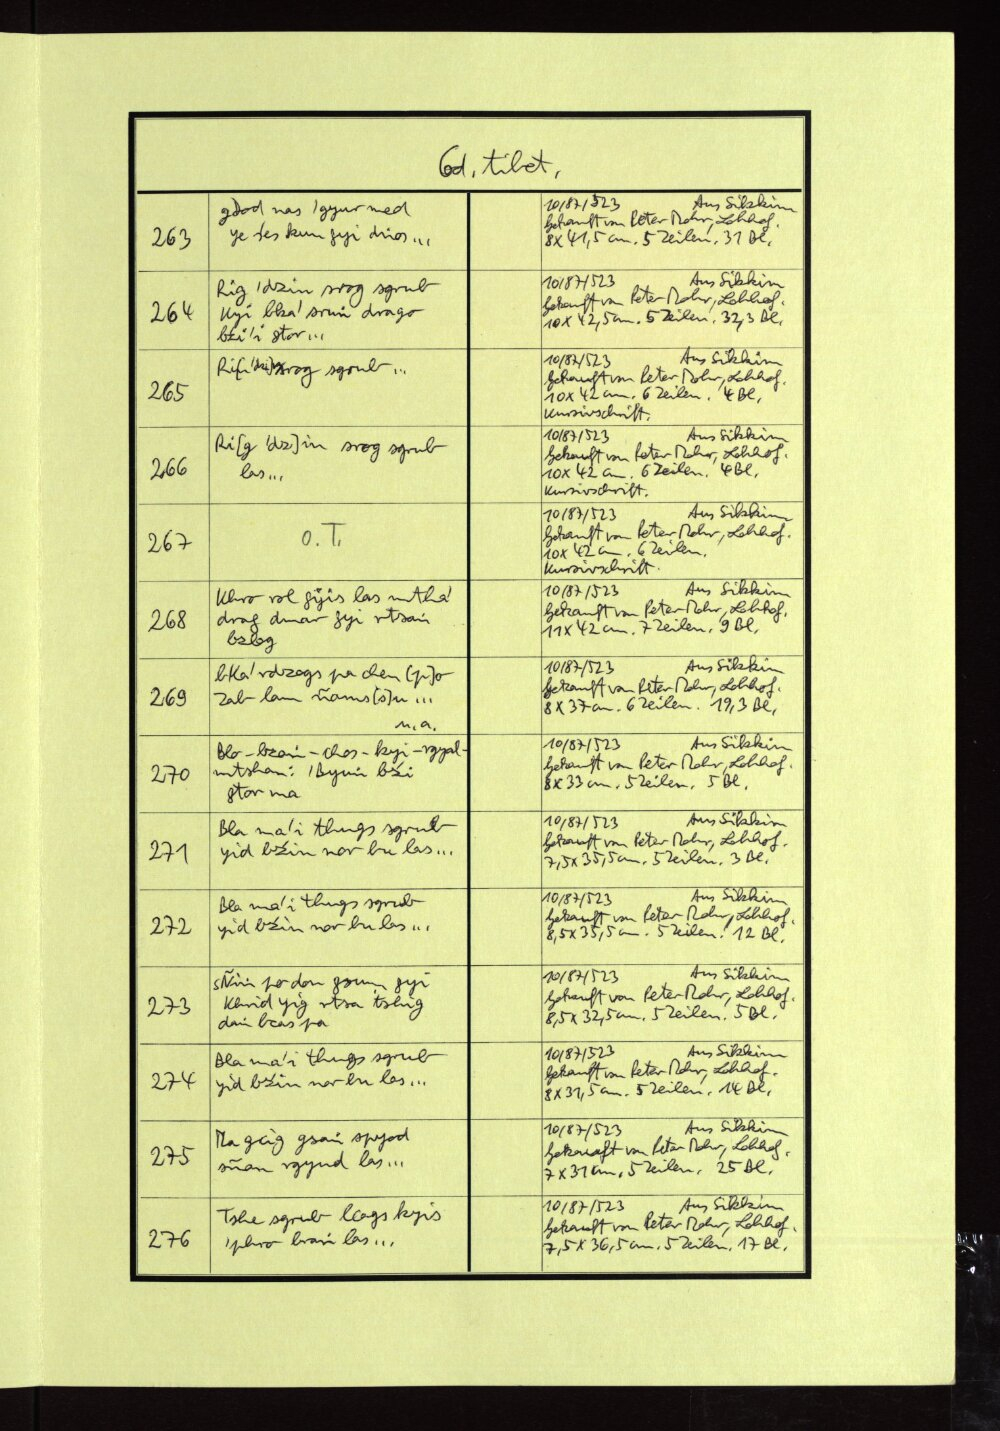 Cod. tibet.
263
gDod nas 'gyur med
ye śes kun gyi dṅos...
10/87/523 Aus Sikkim
Gekauft von Peter Mohr, Lohhof.
8 x 41,5 cm. 5 Zeilen. 31 Bl.
264
Rig 'dzin srog sgrub
kyi bka' sruṅ drago
bźi'i gtor...
10/87/523 Aus Sikkim
Gekauft von Peter Mohr, Lohhof.
10 x 42,5 cm. 5 Zeilen. 32,3 Bl.
265
srog sgrub...
10/87/523 Aus Sikkim
Gekauft von Peter Mohr, Lohhof.
10 x 42 cm. 6 Zeilen. 4 Bl.
Kursivschrift.
266
Ri[g 'dz]in srog sgrub
las...
10/87/523 Aus Sikkim
Gekauft von Peter Mohr, Lohhof.
10 x 42 cm. 6 Zeilen. 4 Bl.
Kursivschrift.
267
o. T.
10/87/523 Aus Sikkim
Gekauft von Peter Mohr, Lohhof.
10 x 42 cm. 6 Zeilen.
Kursivschrift.
268
Khro rol gyis las mtha'
drag dmar gyi rtsaṅ
bzlog
10/87/523 Aus Sikkim
Gekauft von Peter Mohr, Lohhof.
11 x 42 cm. 7 Zeilen. 9 Bl.
269
bKa' rdzogs pa chen [p]o
zab lam ñams[s]u...
u.a.
10/87/523 Aus Sikkim
Gekauft von Peter Mohr, Lohhof.
8 x 37 cm. 6 Zeilen. 19,3 Bl.
270
Blo-bzaṅ-chos-kyi-rgyal-
mtshan: 'Byuṅ bźi
gtor ma
10/87/523 Aus Sikkim
Gekauft von Peter Mohr, Lohhof.
8 x 33 cm. 5 Zeilen. 5 Bl.
271
Bla ma'i thugs sgrub
yid bźin nor bu las...
10/87/523 Aus Sikkim
Gekauft von Peter Mohr, Lohhof.
7,5 x 35,5 cm. 5 Zeilen. 3 Bl.
272
Bla ma'i thugs sgrub
yid bźin nor bu las...
10/87/523 Aus Sikkim
Gekauft von Peter Mohr, Lohhof.
8,5 x 35,5 cm. 5 Zeilen. 12 Bl.
273
sÑiṅ po don gsum gyi
khrid yig rtsa tshig
daṅ bcas pa
10/87/523 Aus Sikkim
Gekauft von Peter Mohr, Lohhof.
8,5 x 32,5 cm. 5 Zeilen. 5 Bl.
274
Bla ma'i thugs sgrub
yid bźin nor bu las...
10/87/523 Aus Sikkim
Gekauft von Peter Mohr, Lohhof.
8 x 31,5 cm. 5 Zeilen. 14 Bl.
275
Ma gcig gsaṅ spyod
sñan rgyud las...
10/87/523 Aus Sikkim
Gekauft von Peter Mohr, Lohhof.
7 x 31 cm. 5 Zeilen. 25 Bl.
276
Tshe sgrub lcags kyis
'phro braṅ las...
10/87/523 Aus Sikkim
Gekauft von Peter Mohr, Lohhof.
7,5 x 36,5 cm. 5 Zeilen. 17 Bl.